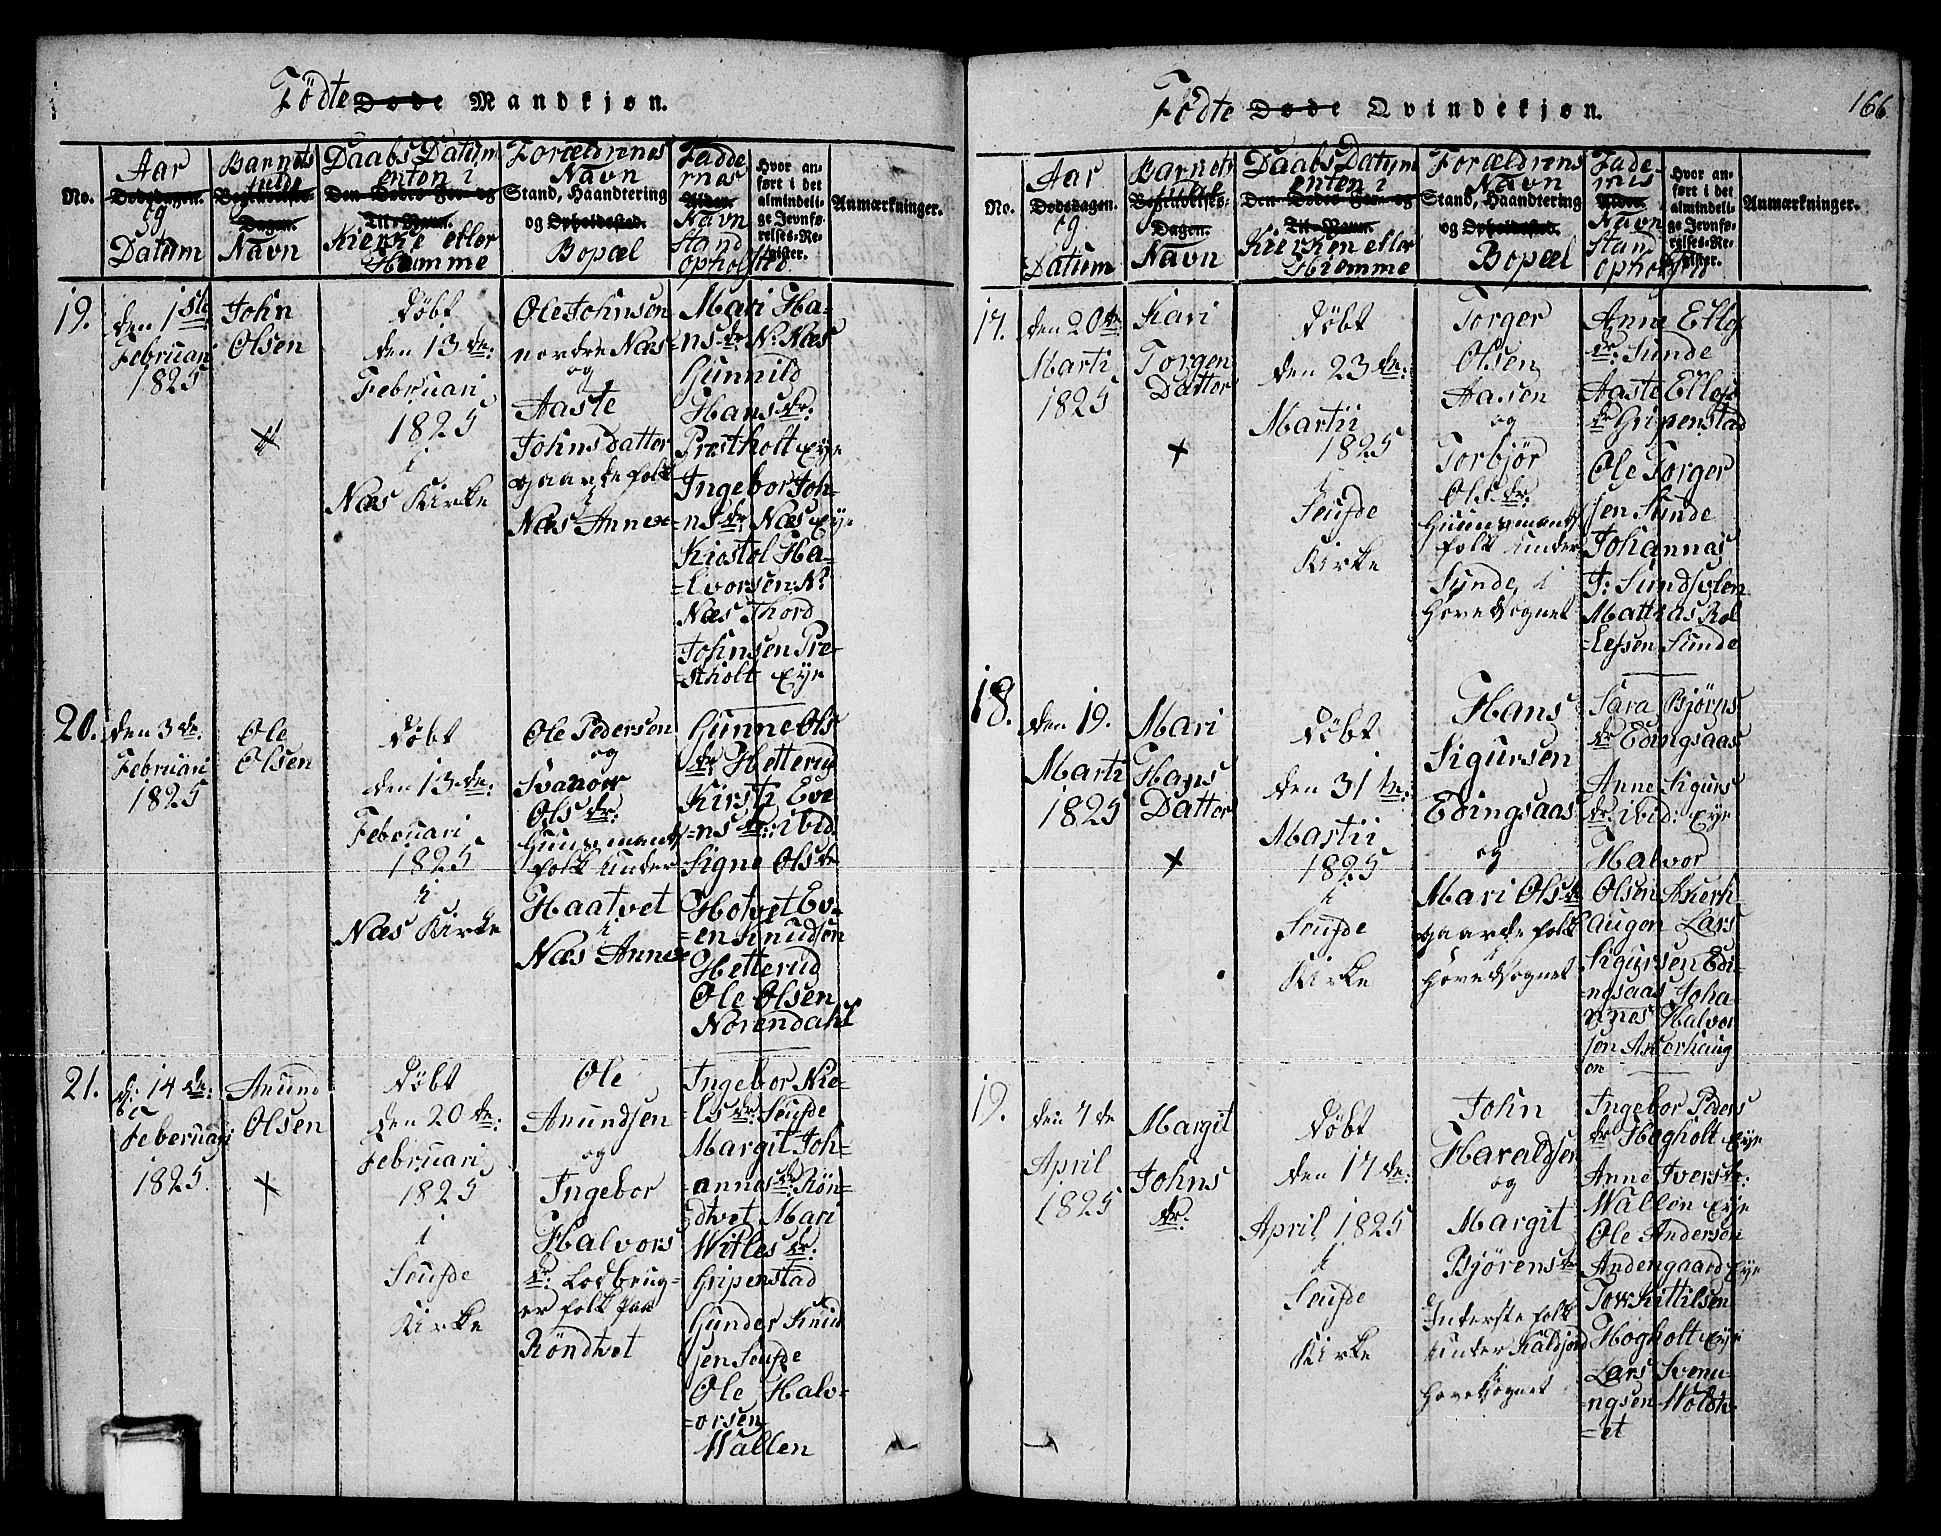 Fødte Døde Mandkjøn.
No.
Aar
Dødsdagen.
og
Datum
Barnets
fulde
Begravelses-
Dagen.
Navn
Daabs Datum
enten i
Kierke eller
Hiemme
Forældrenes
Navn
Stand, Haandtering
og Opholdssted.
Bopæl
Fadde
rnes
Alder.
Navn
Stand
Opholdsted
Hvor an-
ført i det
almindeli-
ge Jevnfø-
relses-Re-
gister.
Anmærkninger.
19.
den 1ste
Februari
1825
John
Olsen
Døbt
den 13de:
Februari
1825
i
Næs Kirke
Ole Johnsen
nordre Næs
og
Aaste
Johnsdatter
gaardefolk
i
Næs Annex
Mari Ha-
=nsdr: N: Næs
Gunnild
Hansdr:
Prestholt Eye
Ingebor Joh-
=nsdr Næs Eye
Kiostol Ha-
=lvorsen N:
Næs Thord
Johnsen Pre-
=stholt Eye
20.
den 3de:
Februari
1825
Ole
Olsen
Døbt
den 13de:
Februari
1825
i
Næs Kirke
Ole Pedersen
og
Svanou
Olsdr:
Huusmands
folk under
Haatvet
i
Næs Annex
Gunne Ols
dr Hetterud
Kirsti Eve
=nsdr: ibid
Signe Olsdr
Hotvet Ev-
=en Knudsen
Hetterud
Ole Olsen
Norendahl
21.
d: 14de:
Februari
1825
Anund
Olsen
Døbt
den 20de:
Februari
1825
i
Seufde
Kirke
Ole
Anundsen
og
Ingebor
Halvors
dr: Lodbrug-
er folk paa
Røndtvet
Ingebor Nie-
=lsdr: Seufde
Margit Joh-
=annasdr: Røn-
dtvet Mari
Nitlesdr:
Gripenstad
Gunder Knud
sen Seufde
Ole Halv-
=orsen
Wallen
Fødte Døde Qvindekjøn.
166
No.
Aar
Dødsdagen.
og
Datum
Barnets
fulde
Dagen.
Navn
Daabs Datum
enten i
Kierken eller
Hiemme
Forældrens
Navn
Stand, Haandtering
og Opholdssted.
Bopæl
Fade-
rnes
Alder.
Navn
Stand
Opholdsted
Hvor an-
ført i det
almindeli-
ge Jevnfø-
relses-Re-
gister.
Anmærkninger.
17.
den 20de:
Marti
1825
Kari
Torgen
Datter
Døbt
den 23de:
Martii
1825
i
Seufde
Kirke
Torger
Olsen
Aasen
og
Torbjør
Olsdr:
Huusmands
folk under
Sunde, i
Hovedsognet
Anne Ellef
dr: Sunde
Aaste Ellefs
dr Gripenstad
Ole Torger
sen Sunde
Johannas
T: Sundsvlen
Mattias Rol
=lefsen Sunde
18.
den 19.
Marti
1825
Mari
Hans
Datter
Døbt
den 31te:
Martii
1825
i
Seufde
Kirke
Hans
Sigursen
Edingsaas
og
Mari Olsdr
gaardefolk
Hovedsognet
Sara Bjørns
dr Edingsaas
Anne Sigurs
dr: ibid: Eye
Halvor
Olsen Aserh
augen Lars
Sigursen Edi-
=ngsaas Joha-
nnes Halvor
sen Aserhaug
en
19.
den 7de
April
1825
Margit
Johns
dr:
Døbt
den 17de:
April 1825
i
Seufde
Kirke
John
Haraldsen
og
Margit
Bjørensdr
Inderste folk
under Kaldjord
Hovedsognet
Ingebor Peders
dr Hogholt Eye
Anne Iversdr:
Wallen Eye
Ole Anderson
Andengaard Eye
Tow Kittilsen
Hogholt Eye
Lars Svenu-
=ngsen Woldtv-
=et